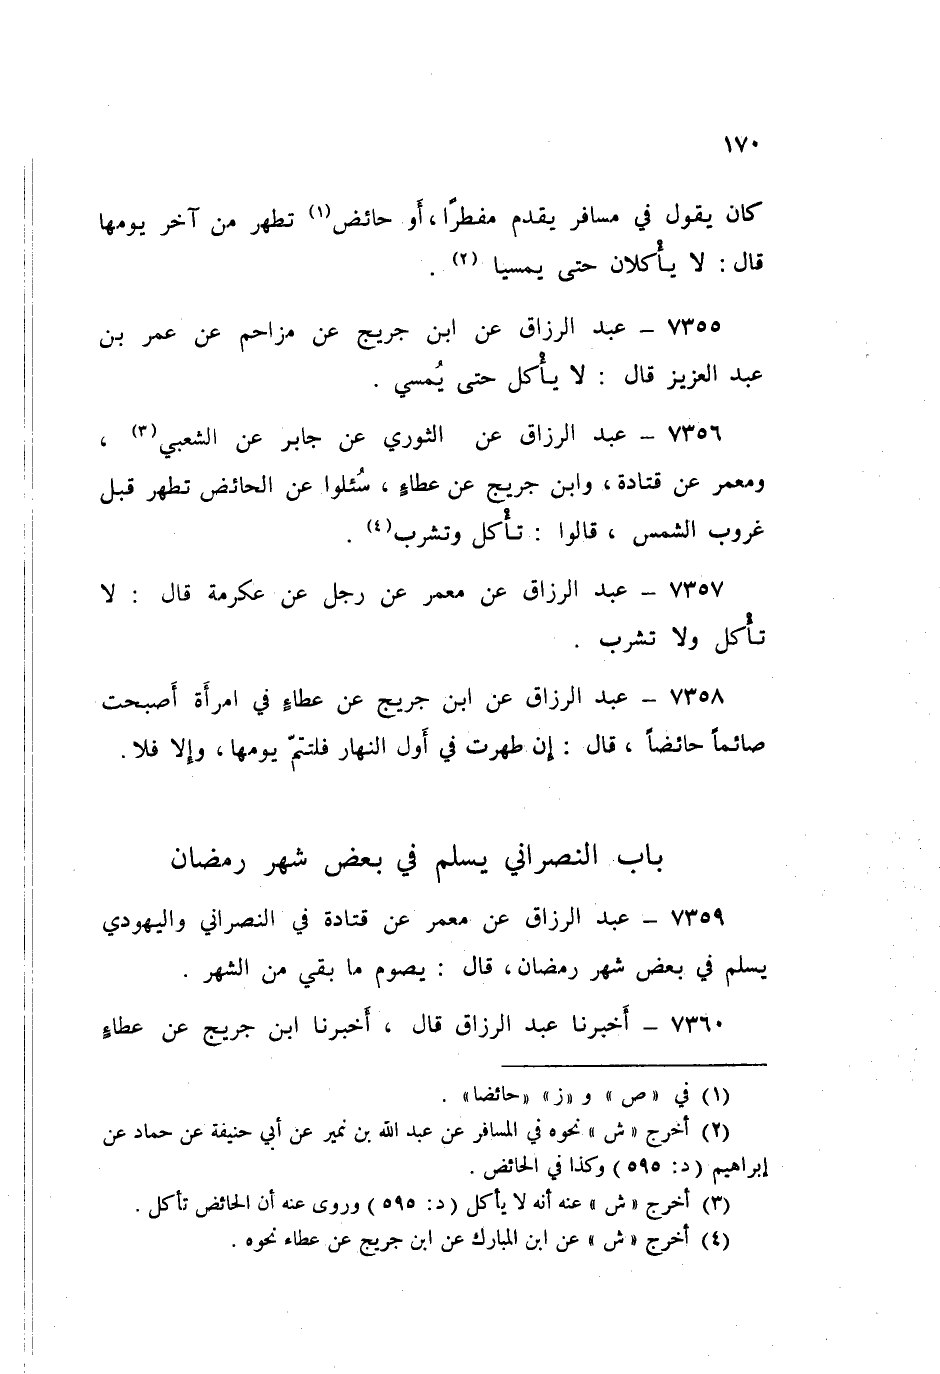 ١٧٠
كان يقول في مسافر يقدم مفطرًا، أو حائض(١) تطهر من آخر يومها
قال : لا يأْكلان حتى يمسيا (٢) .
٧٣٥٥ – عبد الرزاق عن ابن جريج عن مزاحم عن عمر بن
عبد العزيز قال : لا يأْكل حتى يُمسي .
٧٣٥٦ – عبد الرزاق عن الثوري عن جابر عن الشعبي(٣) ،
ومعمر عن قتادة ، وابن جريج عن عطاءٍ ، سُئلوا عن الحائض تطهر قبل
غروب الشمس ، قالوا : تأْكل وتشرب(٤) .
٧٣٥٧ – عبد الرزاق عن معمر عن رجل عن عكرمة قال : لا
تأْكل ولا تشرب .
٧٣٥٨ – عبد الرزاق عن ابن جريج عن عطاءٍ في امرأَة أَصبحت
صائماً حائضاً ، قال : إن طهرت في أَول النهار فلتتمّ يومها ، وإلا فلا .
باب النصراني يسلم في بعض شهر رمضان
٧٣٥٩ – عبد الرزاق عن معمر عن قتادة في النصراني واليهودي
يسلم في بعض شهر رمضان ، قال : يصوم ما بقي من الشهر .
٧٣٦٠ – أَخبرنا عبد الرزاق قال ، أَخبرنا ابن جريج عن عطاءٍ
(١) في «ص» و «ز» «حائضا» .
(٢) أخرج «ش» نحوه في المسافر عن عبد الله بن نمير عن أبي حنيفة عن حماد عن
إبراهيم (د: ٥٩٥) وكذا في الحائض .
(٣) أخرج «ش» عنه أنه لا يأكل (د: ٥٩٥) وروى عنه أن الحائض تأكل .
(٤) أخرج «ش» عن ابن المبارك عن ابن جريج عن عطاء نحوه .